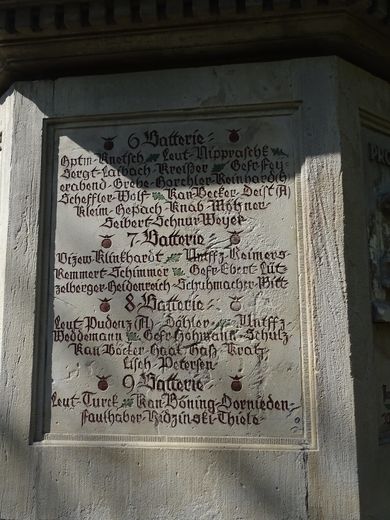 6 Batterie:
Hptm-Knetsch Leut-Nippraschk
Sergt-Laibach-Kreißer Gefr-Fey-
erabend-Grebe-Horchler-Reinhardth
Scheffler-Wolf Kan-Becker-Deist (A)
Kleim-Gepach-Knab-Metzner-
Seibert-Schnur-Weyer
7 Batterie:
Vizew-Klinkhardt Untffz-Reimers-
Remmert-Schimmer Gefr-Ebert-Lüt-
zelberger-Heidenreich-Schuhmacher-Witt
8 Batterie:
Leut-Pudenz (A)-Döhler Untffz
Weddemann Gefr-Hohmann-Schulz
Kan-Böcker-Haal-Haß-Kratz
Lisch-Petersen
9 Batterie:
Leut-Turck Kan-Böning-Dornieden-
Faulhaber-Nidzinski-Thiele-